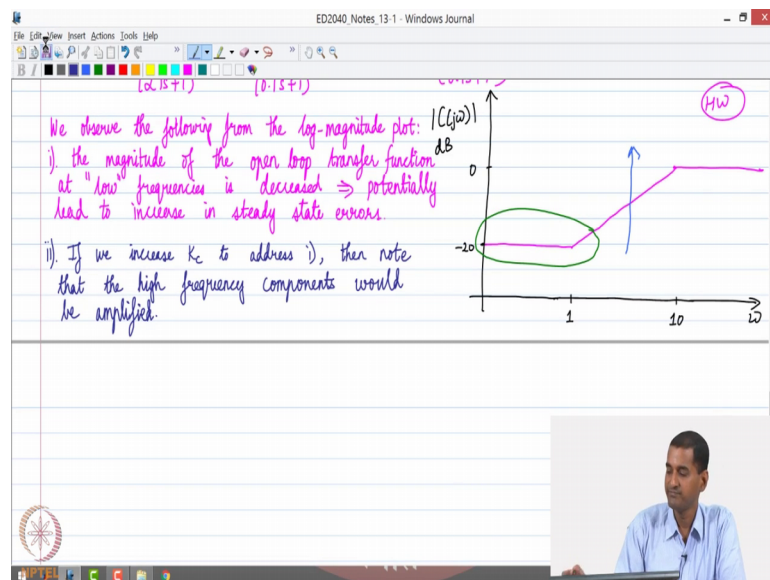 ED2040_Notes_13-1 - Windows Journal
File Edit View Insert Actions Tools Help
B I
(0.1s+1)
We observe the following from the log-magnitude plot:
i). the magnitude of the open loop transfer function
at "low" frequencies is decreased ⇒ potentially
lead to increase in steady state errors.
ii). If we increase Kc to address i), then note
that the high frequency components would
be amplified.
|C(jω)|
dB
HW
0
-20
1
10
ω
NPTEL